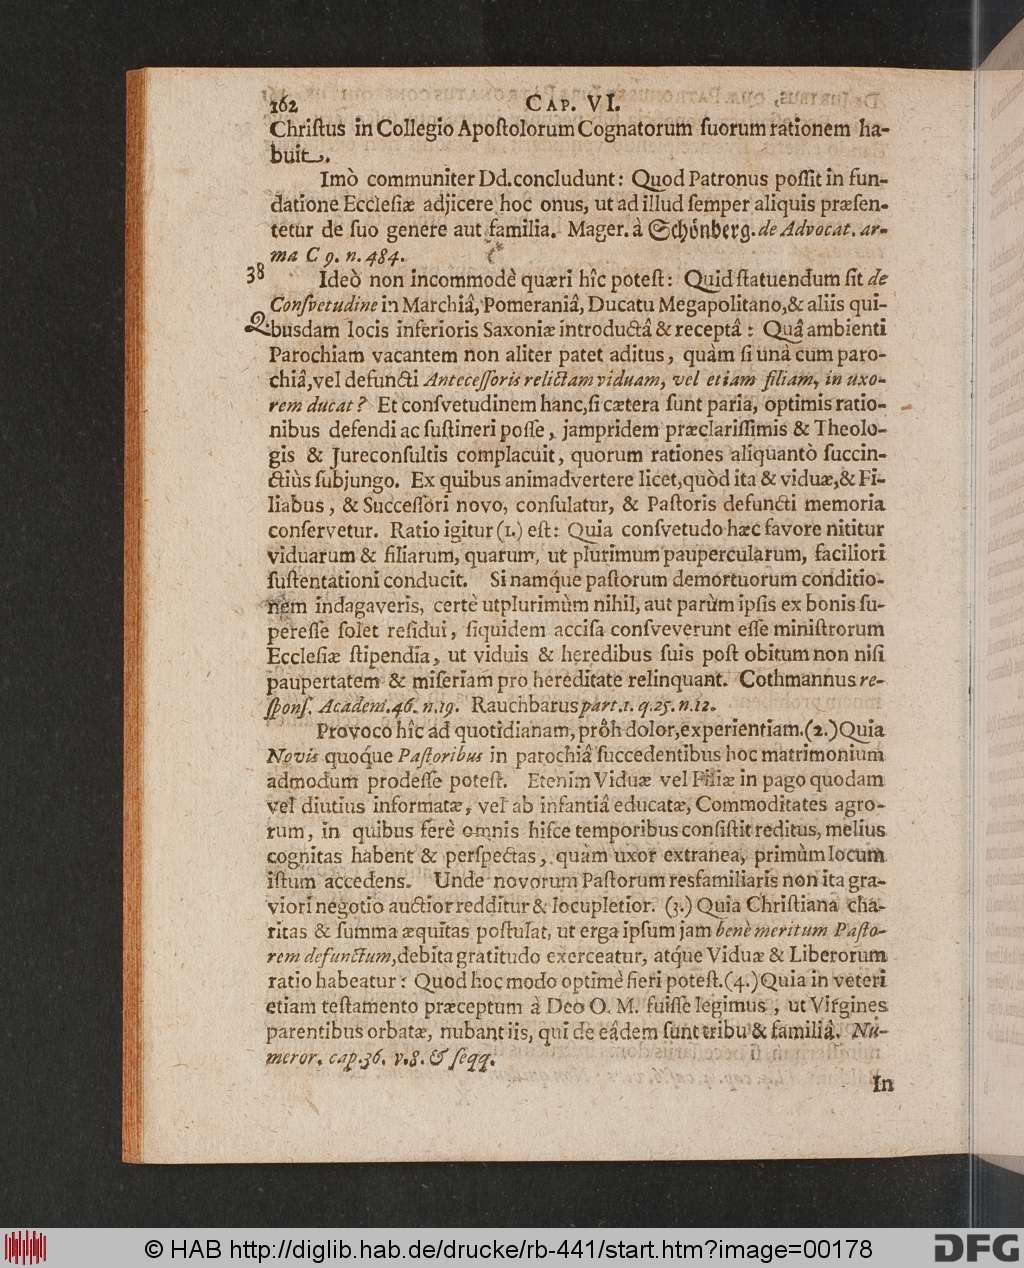 162 CAP. VI.
Chriſtus in Collegio Apoſtolorum Cognatorum ſuorum rationem ha-
buit.
Imò communiter Dd. concludunt: Quod Patronus poſſit in fun-
datione Eccleſiæ adjicere hoc onus, ut ad illud ſemper aliquis præſen-
tetur de ſuo genere aut familia. Mager. à Schönberg. de Advocat. ar-
ma C 9. n. 484.
38 Ideò non incommodè quæri hîc poteſt: Quid ſtatuendum ſit de
Conſvetudine in Marchiâ, Pomeraniâ, Ducatu Megapolitano, & aliis qui-
busdam locis inferioris Saxoniæ introductâ & receptâ: Quâ ambienti
Parochiam vacantem non aliter patet aditus, quàm ſi unà cum paro-
chiâ, vel defuncti Anteceſſoris relictam viduam, vel etiam filiam, in uxo-
rem ducat? Et conſvetudinem hanc, ſi cætera ſunt paria, optimis ratio-
nibus defendi ac ſuſtineri poſſe, jampridem præclariſſimis & Theolo-
gis & Jureconſultis complacuit, quorum rationes aliquantò ſuccin-
ctiùs ſubjungo. Ex quibus animadvertere licet, quòd ita & viduæ, & Fi-
liabus, & Succeſſori novo, conſulatur, & Paſtoris defuncti memoria
conſervetur. Ratio igitur (1.) eſt: Quia conſvetudo hæc favore nititur
viduarum & filiarum, quarum, ut plurimum paupercularum, faciliori
ſuſtentationi conducit. Si namq́ue paſtorum demortuorum conditio-
nem indagaveris, certè utplurimùm nihil, aut parùm ipſis ex bonis ſu-
pereſſe ſolet reſidui, ſiquidem acciſa conſveverunt eſſe miniſtrorum
Eccleſiæ ſtipendia, ut viduis & heredibus ſuis poſt obitum non niſi
paupertatem & miſeriam pro hereditate relinquant. Cothmannus re-
ſponſ. Academ. 46. n. 19. Rauchbarus part. 1. q. 25. n. 12.
Provoco hîc ad quotidianam, prôh dolor, experientiam. (2.) Quia
Novis quoq́ue Paſtoribus in parochiâ ſuccedentibus hoc matrimonium
admodum prodeſſe poteſt. Etenim Viduæ vel Filiæ in pago quodam
vel diutius informatæ, vel ab infantiâ educatæ, Commoditates agro-
rum, in quibus ferè omnis hiſce temporibus conſiſtit reditus, melius
cognitas habent & perſpectas, quàm uxor extranea, primùm locum
iſtum accedens. Unde novorum Paſtorum resfamiliaris non ita gra-
viori negotio auctior redditur & locupletior. (3.) Quia Chriſtiana cha-
ritas & ſumma æquitas poſtulat, ut erga ipſum jam benè meritum Paſto-
rem defunctum, debita gratitudo exerceatur, atq́ue Viduæ & Liberorum
ratio habeatur: Quod hoc modo optimè fieri poteſt. (4.) Quia in veteri
etiam teſtamento præceptum à Deo O. M. fuiſſe legimus, ut Virgines
parentibus orbatæ, nubant iis, qui de eâdem ſunt tribu & familiâ. Nu-
meror. cap. 36. v. 8. & ſeqq.
In
© HAB http://diglib.hab.de/drucke/rb-441/start.htm?image=00178 DFG